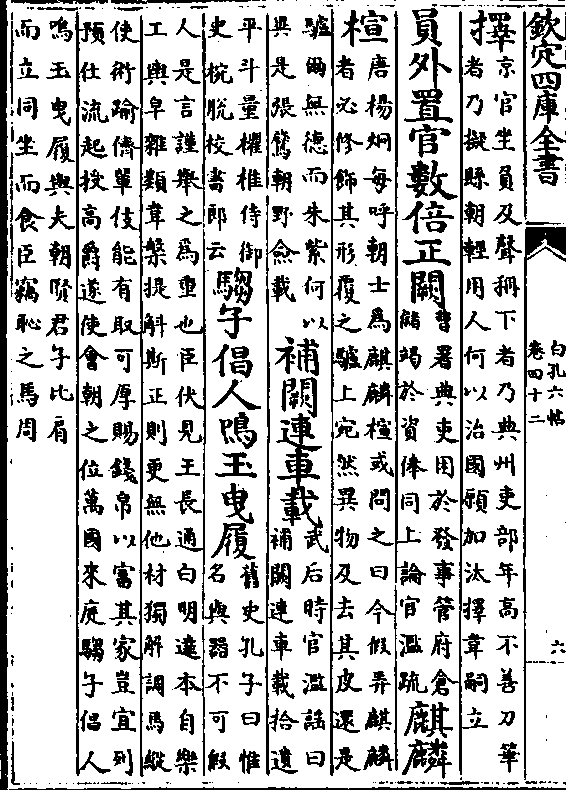 欽定四庫全書
白孔六帖
卷四十二
六
擇
京官坐員及聲稱下者乃典州吏部年高不善刀筆
者乃擬縣朝輕用人何以治國願加汰擇韋嗣立
員外置官數倍正闕
曹署典吏用於發事管府倉
儲竭於資俸同上論官濫疏
麒麟
楦
唐楊炯每呼朝士為麒麟楦或問之曰今假弄麒麟
者必修飾其形覆之驢上宛然異物及去其皮還是
驢爾無德而朱紫何以
異是張鷟朝野僉載
補闕連車載
武后時官濫謡曰
補闕連車載拾遺
平斗量欋椎侍御
史椀脫校書郎云
騶子倡人鳴玉曳履
舊史孔子曰惟
名與器不可假
人是言謹舉之為重也臣伏見王長通白明達本自樂
工輿皁雜類韋槃提斛斯正則更無他材獨解調馬縱
使術踰儕單伎能有取可厚賜錢帛以富其家豈宜列
預仕流起授高爵遂使會朝之位萬國來庭騶子倡人
鳴玉曳履與夫朝賢君子比肩
而立同坐而食臣竊恥之馬周